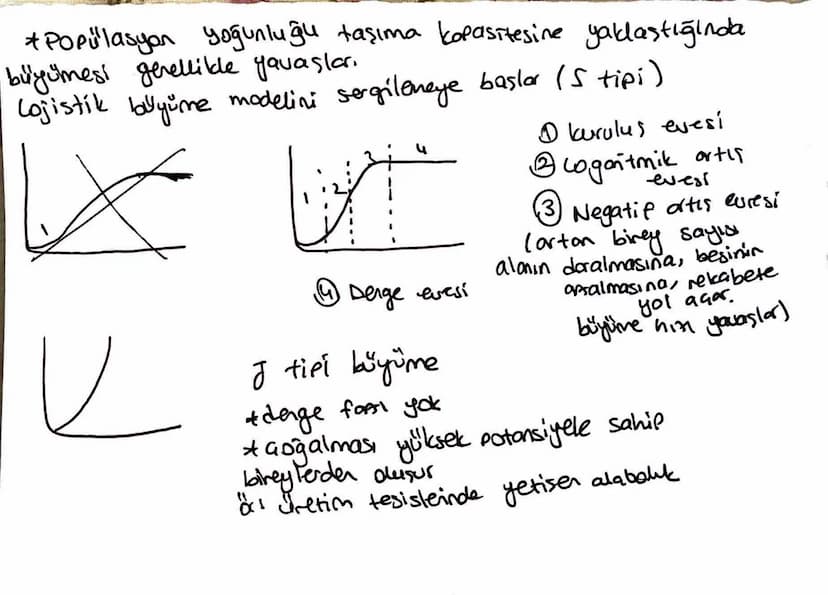 *Popülasyon yoğunluğu taşıma kapasitesine yaklaştığında
büyümesi genellikle yavaşlar.
Lojistik büyüme modelini sergilemeye başlar (S tipi)
① kuruluş evresi
② Logaritmik artış
evresi
③ Negatif artış evresi
(artan birey sayısı
alanın daralmasına, besinin
azalmasına, rekabete
yol açar.
büyüme hızı yavaşlar)
1
1 2 3 4
④ Denge evresi
J tipi büyüme
*denge fazı yok
*Çoğalması yüksek potansiyele sahip
bireylerden oluşur
ör: üretim tesislerinde yetişen alabalık